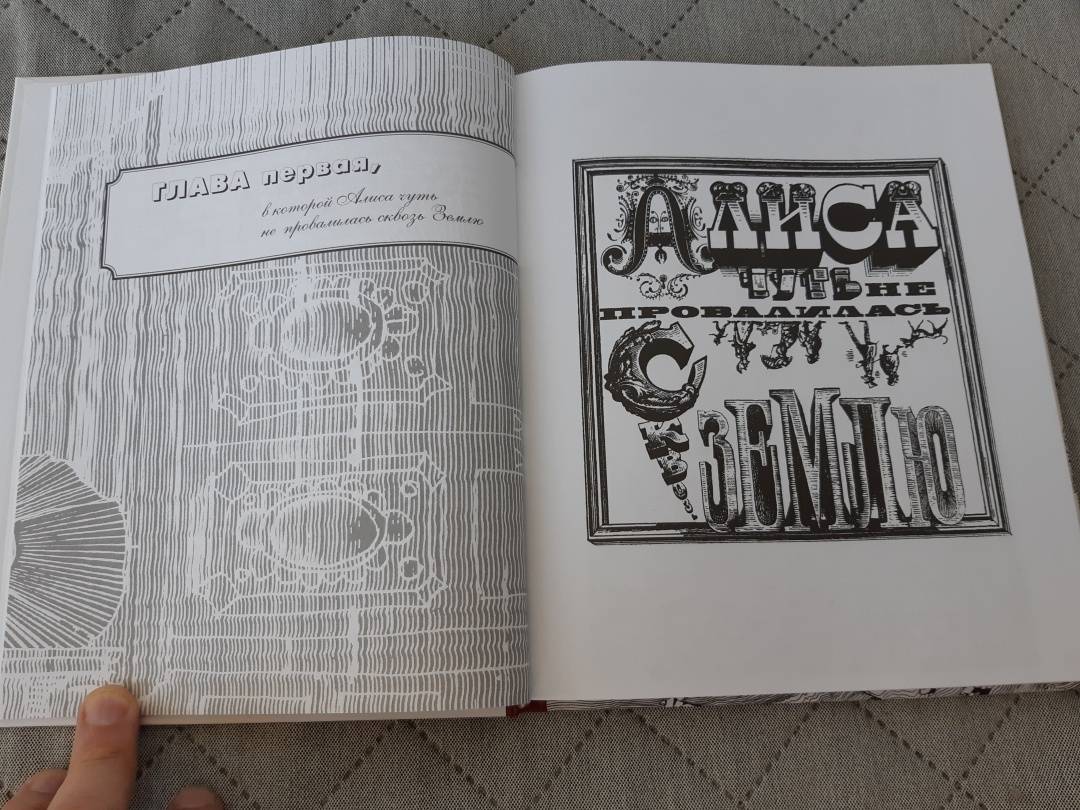 ГЛАВА первая,
в которой Алиса чуть
не провалилась сквозь Землю
АЛИСА
ЧУТЬ НЕ
ПРОВАЛИЛАСЬ
СКВОЗЬ
ЗЕМЛЮ